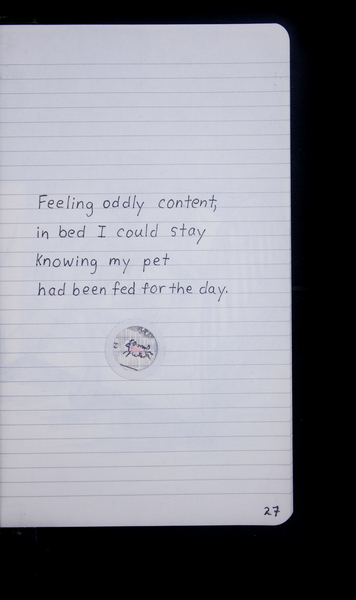 Feeling oddly content,
in bed I could stay
Knowing my pet
had been fed for the day.
27